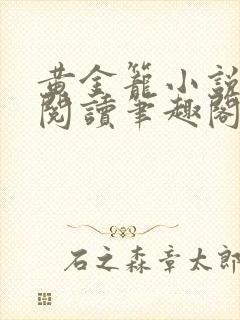 黄金籠小説
閱讀筆趣閣
石之森章太郎